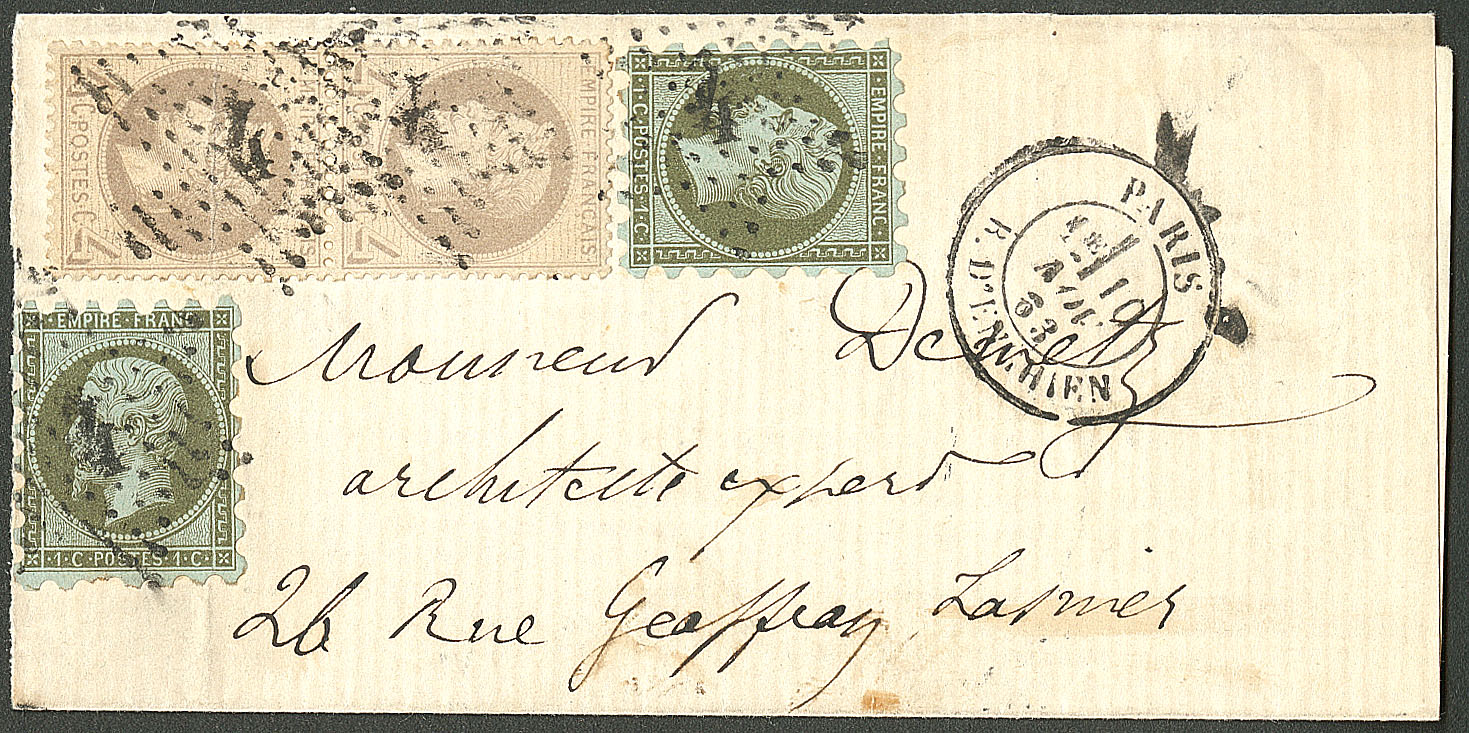 4 C. POSTES. C. 4
EMPIRE FRANÇAIS
EMPIRE·FRANC
·1·C·POSTES·1·C·
PARIS
R. D'ENGHIEN
1E
10
63
EMPIRE·FRANC
·1·C·POSTES·1·C·
4
4
1
Monsieur Dewetz
architecte expert
26 Rue Geoffroy Lasnier